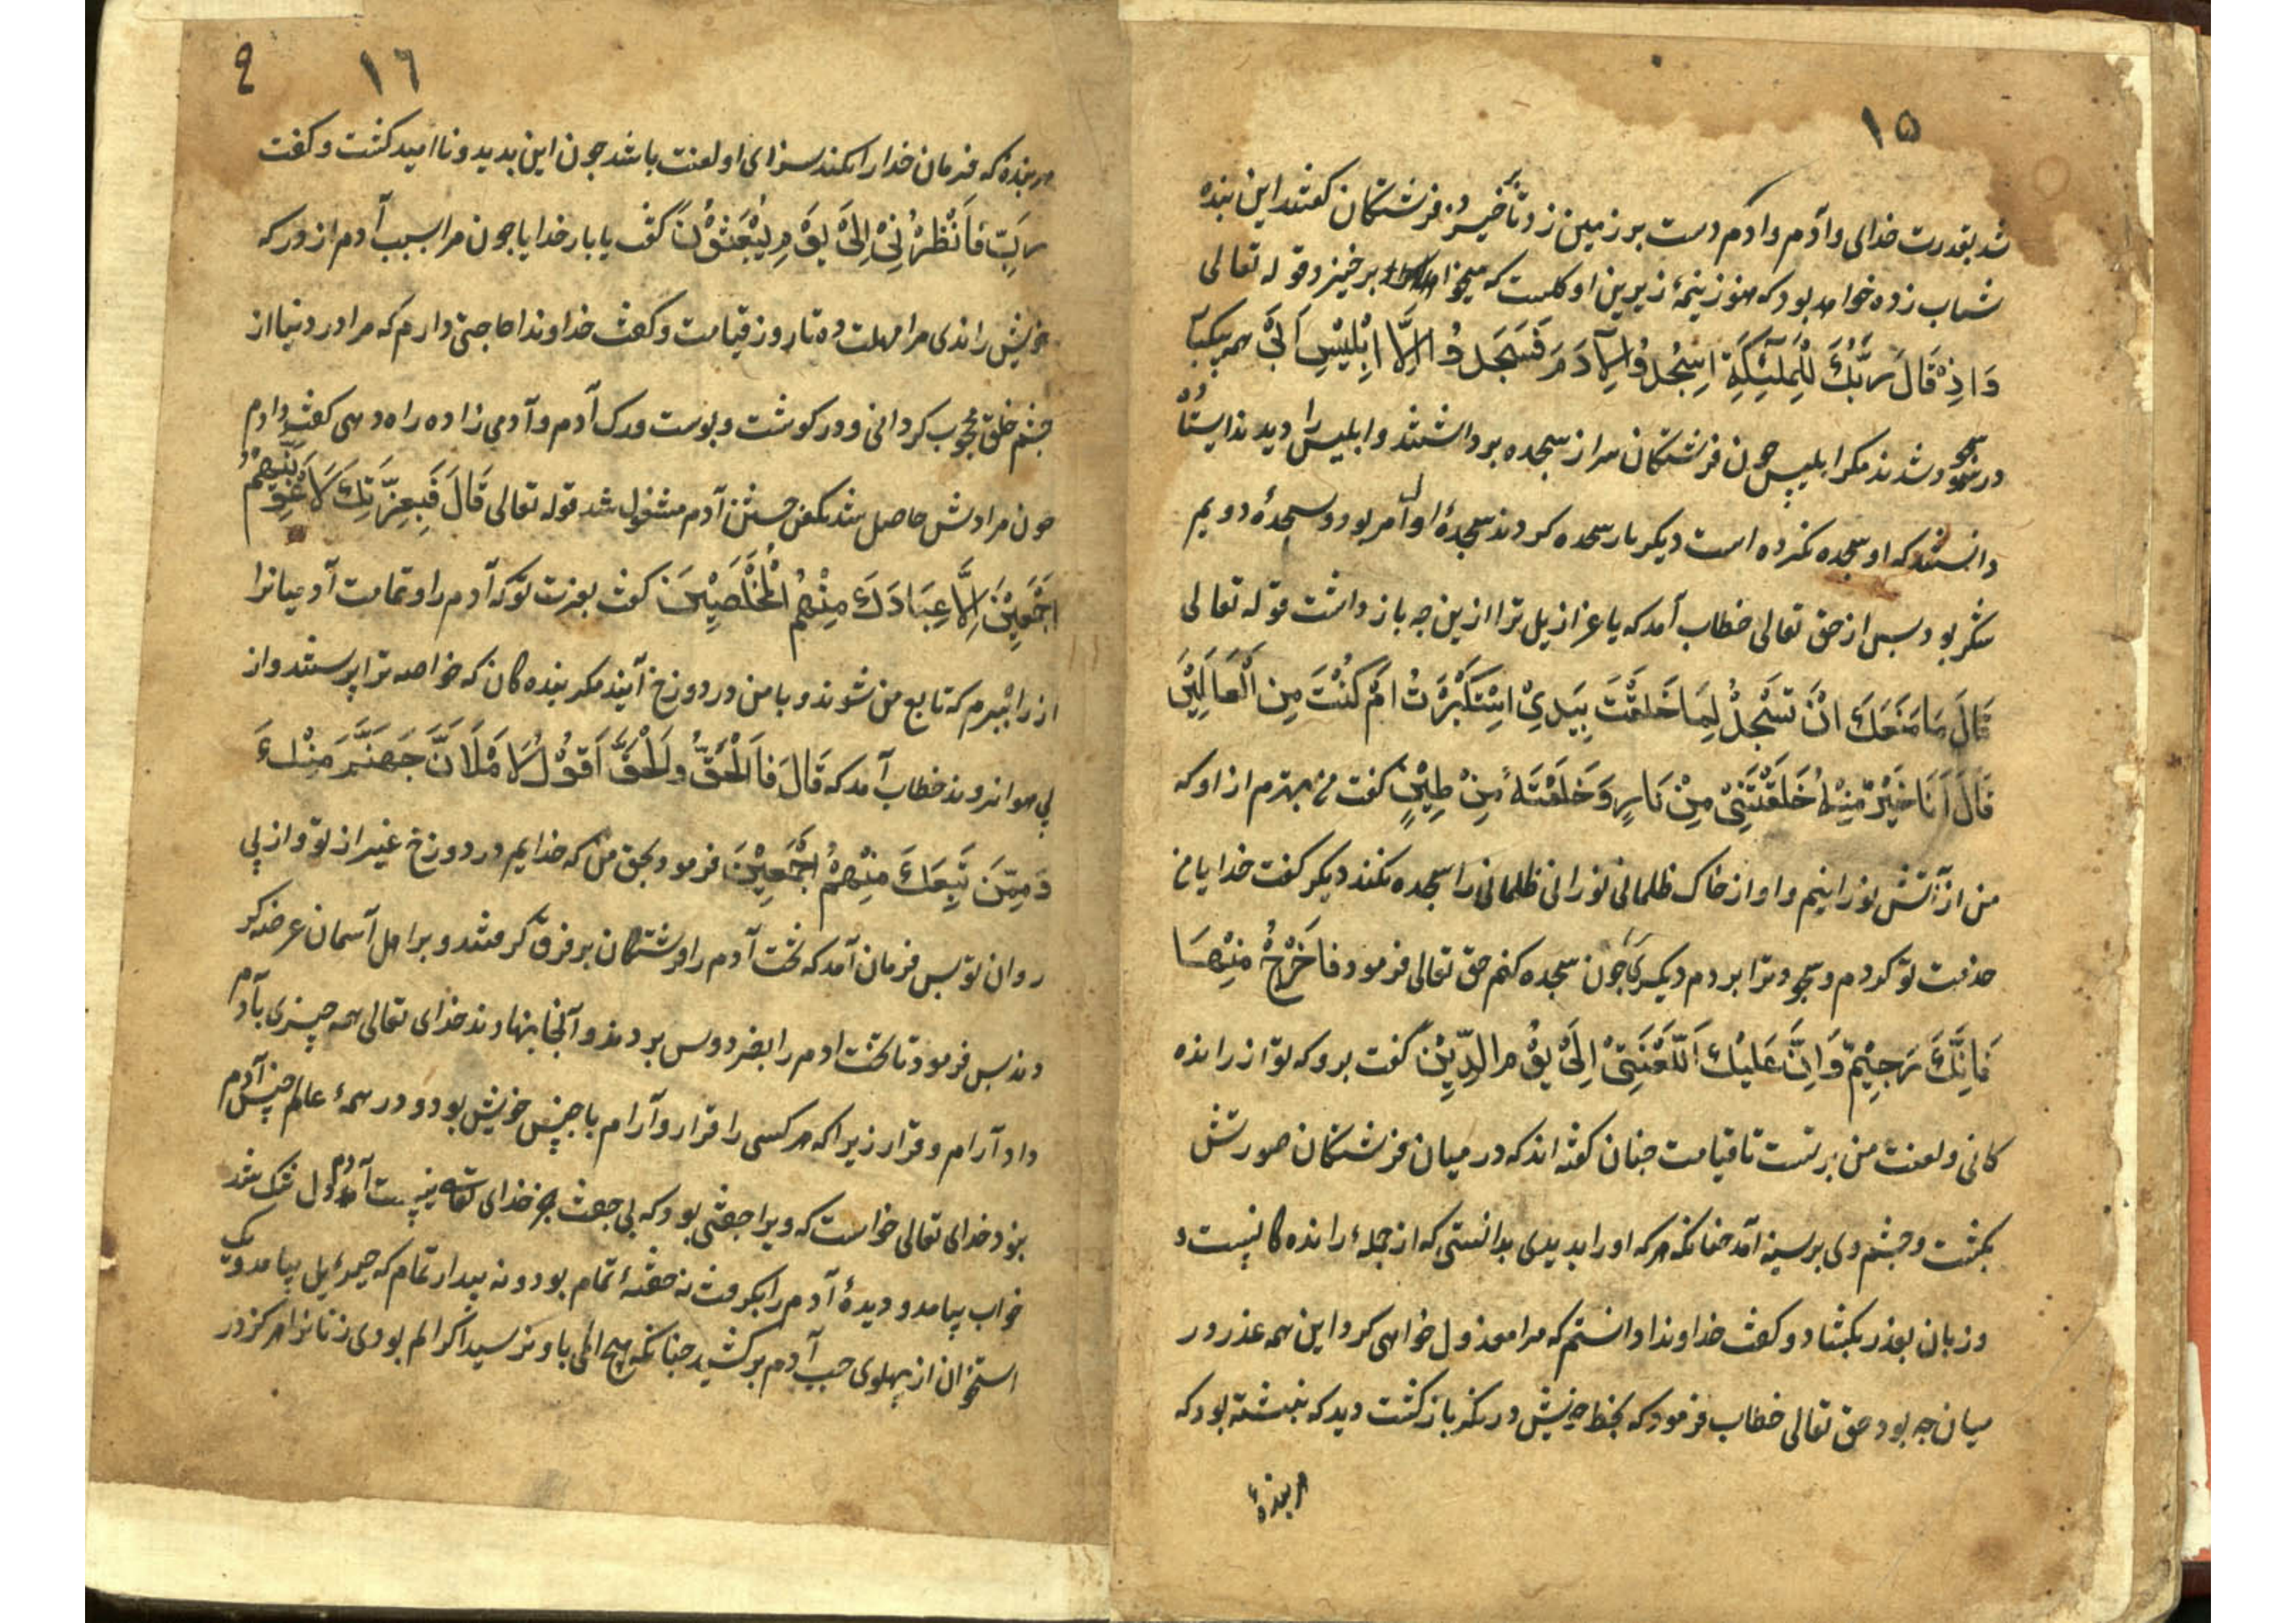 ۱۵
شد بقدرت خدای و آدم دست بر زمین زد تا خیزد فرشتکان کفتند این بنده
شتاب زده خواهد بود که هنوز نیمهٔ زیرین او کلست که میخواهد برخیزد قوله تعالی
وَاِذْ قَالَ رَبُّكَ لِلْمَلٰٓئِكَةِ اسْجُدُوْا لِاٰدَمَ فَسَجَدُوْا اِلَّا اِبْلِیْسَ اَبٰی همه بیکبار
در سجود شدند مکر ابلیس چون فرشتکان سر از سجده برداشتند و ابلیس را دیدند ایستاده
دانستند که او سجده نکرده است دیکر بار سجده کردند سجدهٔ اول امر بود و سجدهٔ دویم
شکر بود بس از حق تعالی خطاب آمد که یا عزازیل ترا ازین چه باز داشت قوله تعالی
قَالَ مَا مَنَعَكَ اَنْ تَسْجُدَ لِمَا خَلَقْتُ بِیَدَیْ اسْتَكْبَرْتَ اَمْ كُنْتَ مِنَ الْعَالِیْنَ
قَالَ اَنَا خَیْرٌ مِنْهُ خَلَقْتَنِیْ مِنْ نَارٍ وَخَلَقْتَهُ مِنْ طِیْنٍ کفت من بهترم از او که
من از آتش نورانیم و او از خاک ظلمانی نورانی ظلمانی را سجده نکند دیکر کفت خدایا من
خدمت تو کردم و سجود ترا بردم دیکری را چون سجده کنم حق تعالی فرمود فَاخْرُجْ مِنْهَا
فَاِنَّكَ رَجِیْمٌ وَاِنَّ عَلَیْكَ اَللَّعْنَتِیْ اِلٰی یَوْمِ الدِّیْنِ کفت برو که تو از رانده
کانی و لعنت من بر تست تا قیامت چنان کفته اند که در میان فرشتکان صورتش
بکشت و چشم وی بر سینه آمد چنانکه هر که او را بدیدی بدانستی که از جملهٔ رانده کانیست و
و زبان بعذر بکشاد و کفت خداوندا دانستم که مرا معذول خواهی کرد این همه عذر در
میان چه بود حق تعالی خطاب فرمود که بخط خویش در نکر باز کشت دید که نبشته بود که
هر بندهٔ
۱٦
هر بندهٔ که فرمان خدا را نکند سزای او لعنت باشد چون این بدید و ناامید کشت و کفت
رَبِّ فَاَنْظِرْنِیْ اِلٰی یَوْمِ یُبْعَثُوْنَ کفت یا بار خدایا چون مرا بسبب آدم از درکه
خویش راندی مرا مهلت ده تا روز قیامت و کفت خداوندا حاجتی دارم که مرا در دنیا از
چشم خلق محجوب کردانی و در کوشت و پوست و رک آدم و آدمی زاده راه دهی کفت دادم
چون مرادش حاصل شد بکفن جستن آدم مشغول شد قوله تعالی قَالَ فَبِعِزَّتِكَ لَاُغْوِیَنَّهُمْ
اَجْمَعِیْنَ اِلَّا عِبَادَكَ مِنْهُمُ الْمُخْلَصِیْنَ کفت بعزت تو که آدم را و تمامت آدمیانرا
از راه ببرم که تابع من شوند و با من در دوزخ آیند مکر بنده کان که خواصه ترا پرستند و از
پی هوا نروند خطاب آمد که قَالَ فَالْحَقُّ وَالْحَقَّ اَقُوْلُ لَاَمْلَاَنَّ جَهَنَّمَ مِنْكَ
وَمِمَّنْ تَبِعَكَ مِنْهُمْ اَجْمَعِیْنَ فرمود بحق من که خدایم در دوزخ غیر از تو و از پی
روان تو بس فرمان آمد که تخت آدم را فرشتکان بر فرق کرفتند و بر اهل آسمان عرضه کر
دند بس فرمود تا تخت ادم را بفردوس بردند و آنجا بنهادند خدای تعالی همه چیزی بآدم
داد آرام و قرار زیرا که هر کسی را قرار و آرام با جنس خویش بود و در همهٔ عالم جنس آدم
نبود خدای تعالی خواست که ویرا جفتی بود که بی جفت جز خدای تعالی نیست آدم دل تنک شد
خواب بیامد و دیدهٔ آدم را بکرفت نه خفتهٔ تمام بود و نه بیدار تمام که جبرئیل بیامد و یک
استخوان از پهلوی چپ آدم بر کشید چنانکه هیچ المی باو نرسید اکر الم بودی زنانرا هرکز در